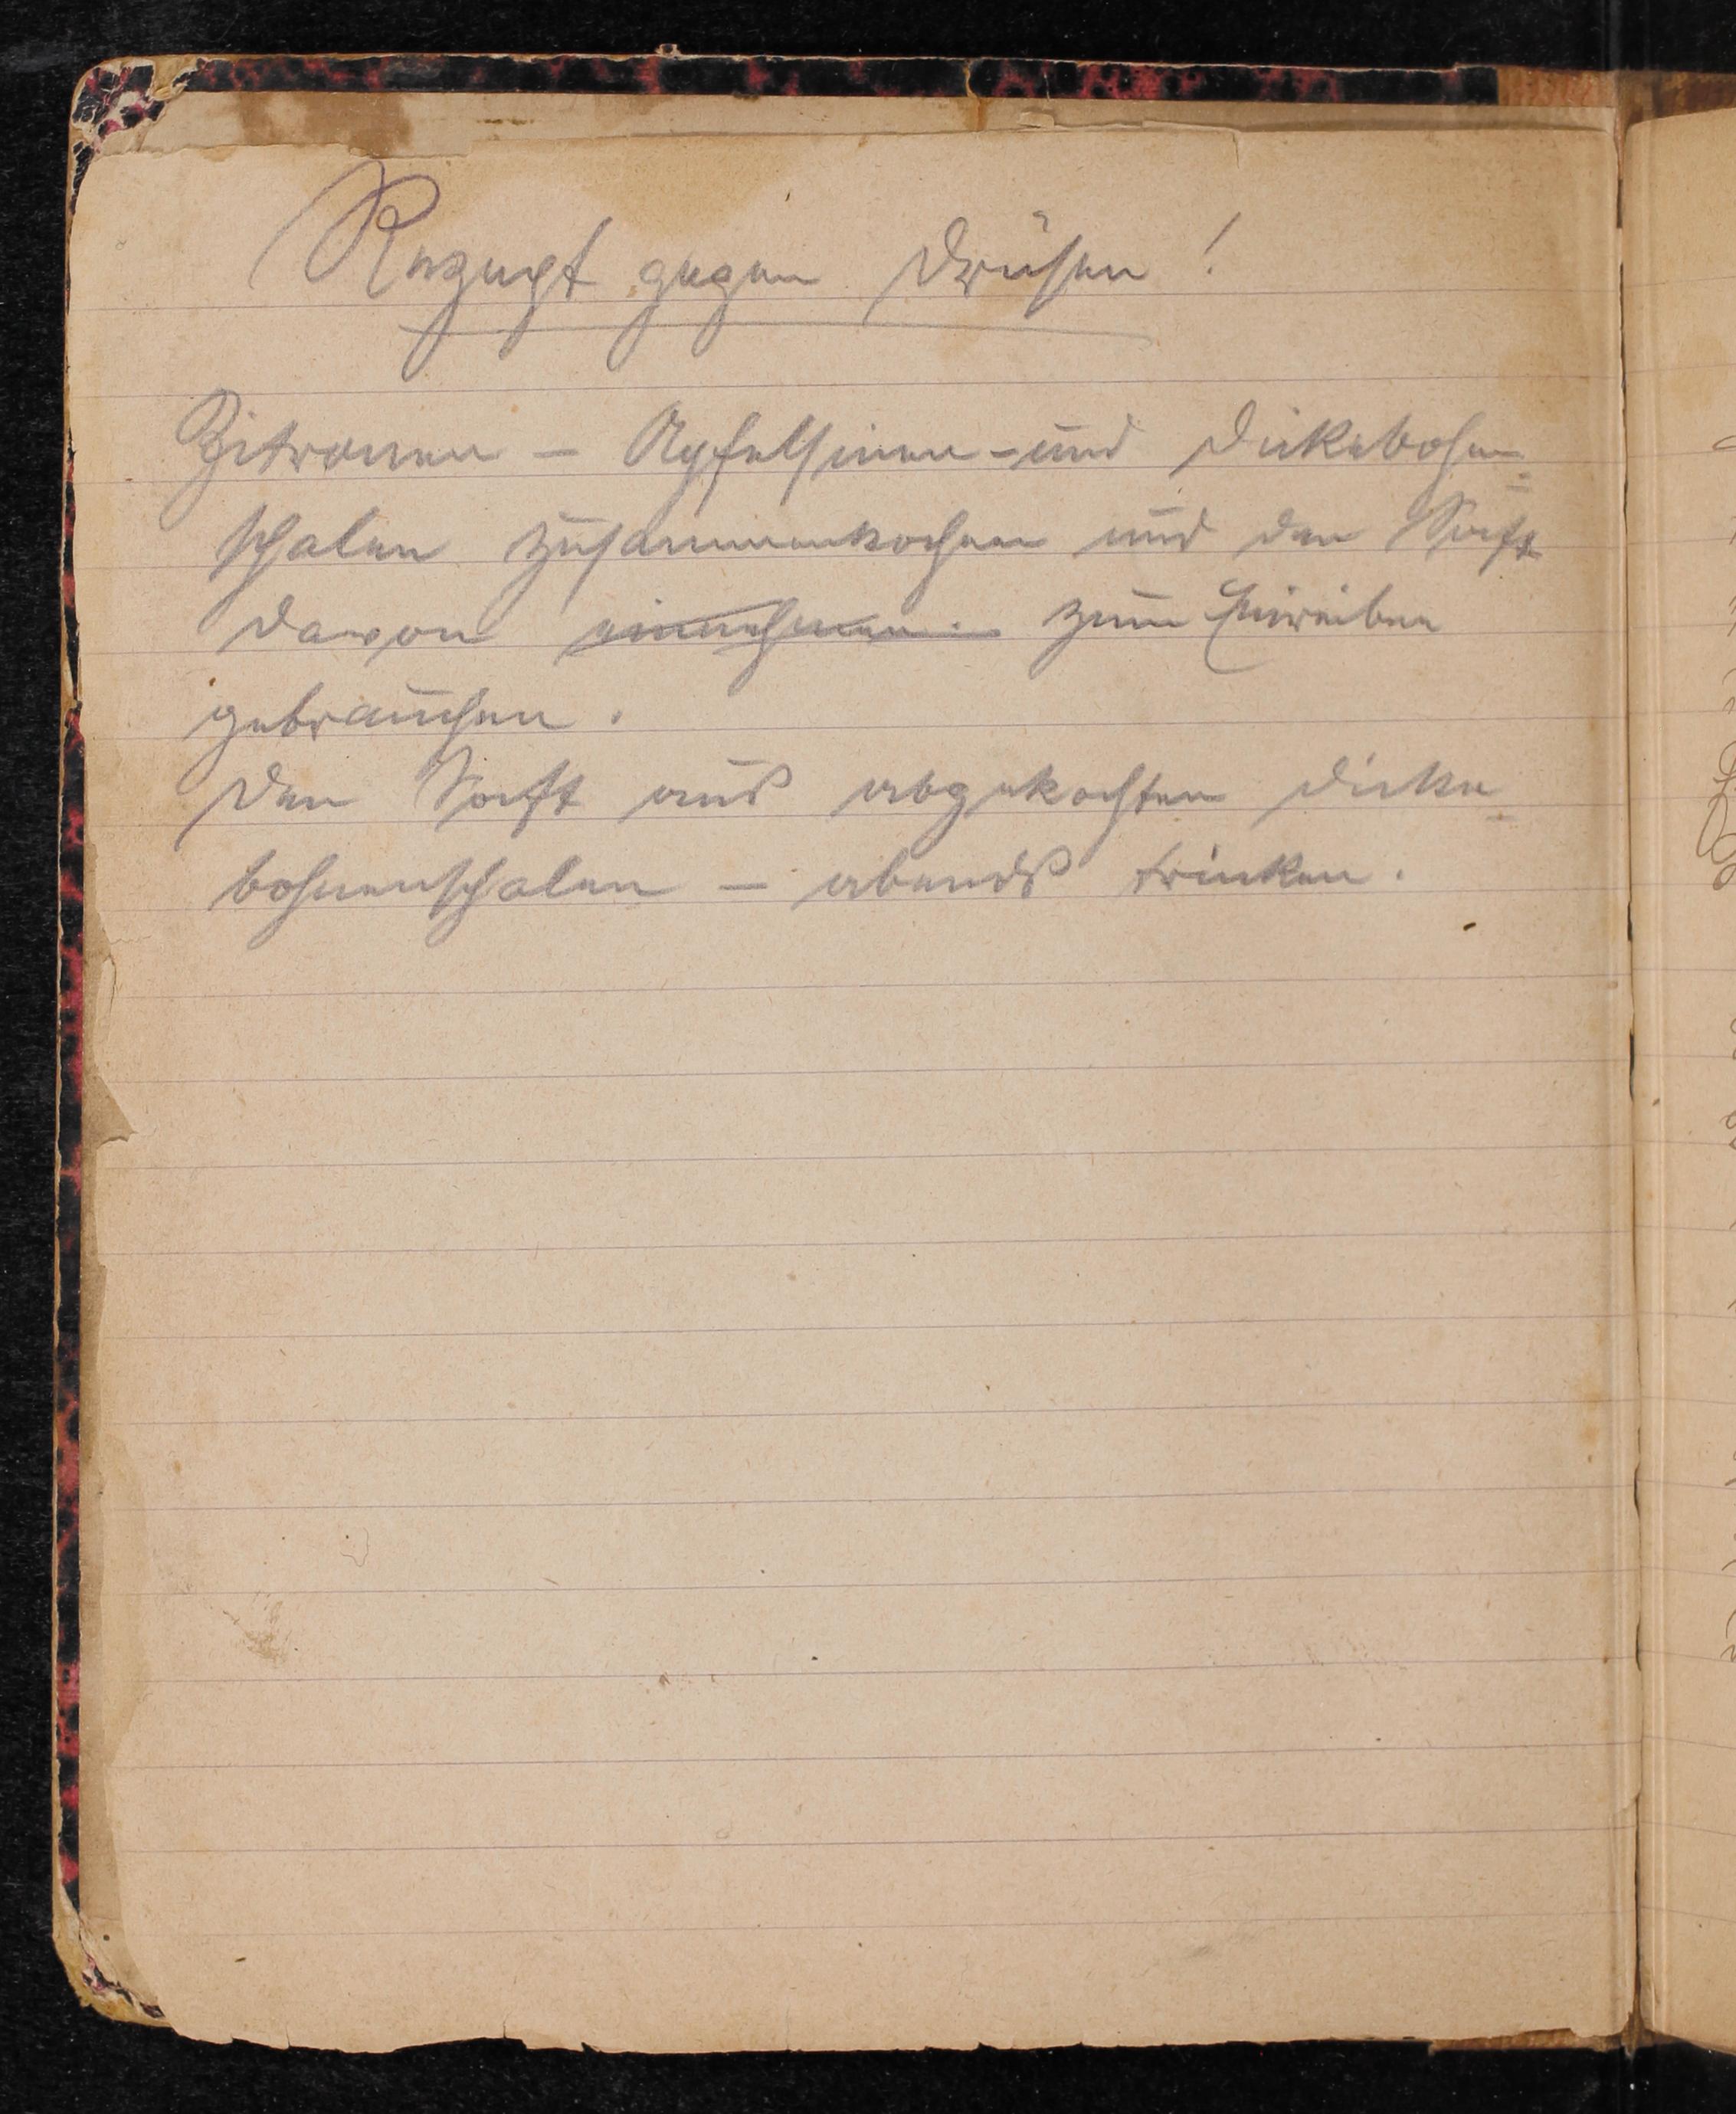 Rezept gegen Drüsen!
Zitronen - Apfelsinen - und Dickebohnen=
schalen zusammenkochen und den Saft
davon einnehmen. zum Einreiben
gebrauchen.
Den Saft aus abgekochten Dicke=
bohnenschalen - abends trinken.